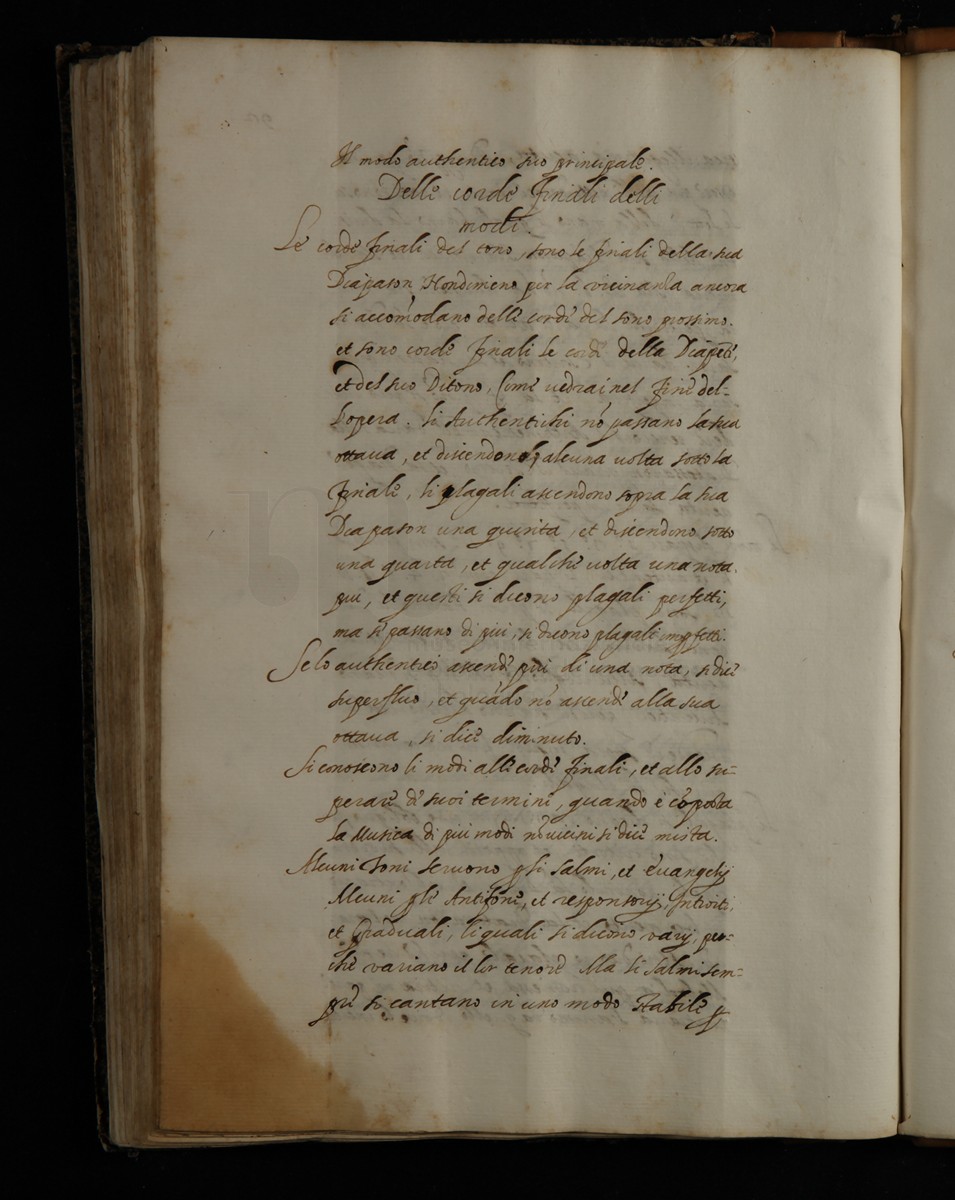 Il modo authentico suo principale.
Delle corde finali delli
modi.
Le corde finali del tono, sono le finali della sua
Diapason Nondimeno per la vicinanza ancora
si accōmodano delle corde del tono prossimo.
et sono corde finali le corde della Diapēte,
et del suo Ditono, Come vedrai nel fine del-
l'opera. li Authentichi nō passano la sua
ottaua, et discendono alcuna uolta sotto la
finale, li plagali ascendono sopra la sua
Diapason una quinta, et discendono sotto
una quarta, et qualche uolta una nota
piu, et questi si dicono plagali perfetti,
ma se passano di piu, si dicono plagali impfetti.
Se lo authentico ascende piu di una nota, si dice
superfluo, et quādo nō ascende alla sua
ottaua, si dice diminuto.
Si conoscono li modi alle corde finali, et allo su-
perare de suoi termini, quando è cōposta
la Musica di piu modi nō uicini si dice mista.
Alcuni Toni seruono p li Salmi, et Euangelij
Alcuni p le Antifone, et responsorij, Introiti,
et Graduali, li quali si dicono varij, per-
che variano il lor tenore Ma li Salmi sem-
pre si cantano in uno modo stabile